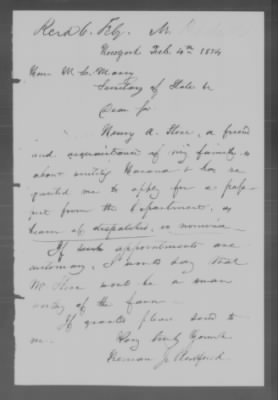 Recd 6. Feby. M.
Newyork Feb 4th 1854
Hon W. L. Marcy
Secretary of State &c
Dear Sir
Henry A. , a friend
and acquaintance of my family is
about visiting Havana & has re
quested me to apply for a pass-
port from the Department, as
bearer of dispatches,
If such appointments are
customary, I would say that
Mr would be a man
worthy of the favor.
If granted please send to
me. Very truly Yours
Heman J. Redfield